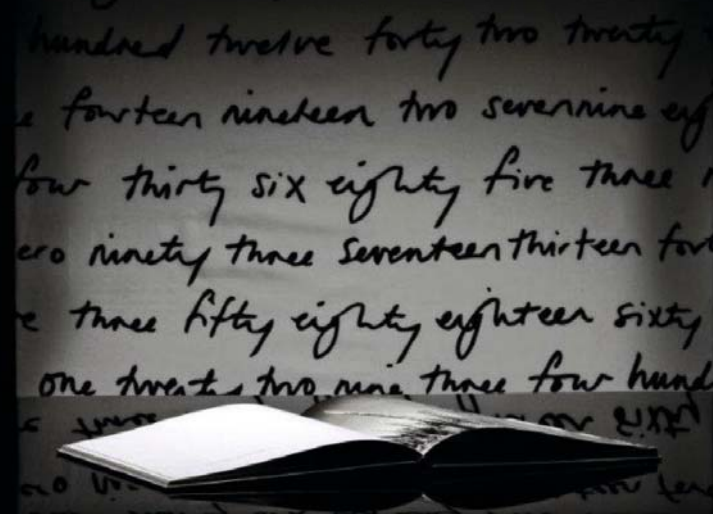 hundred twelve forty two twenty
fourteen nineteen two seven nine eig
four thirty six eighty five three
ero ninety three seventeen thirteen fort
e three fifty eighty eighteen sixty
one twenty two nine three four hund